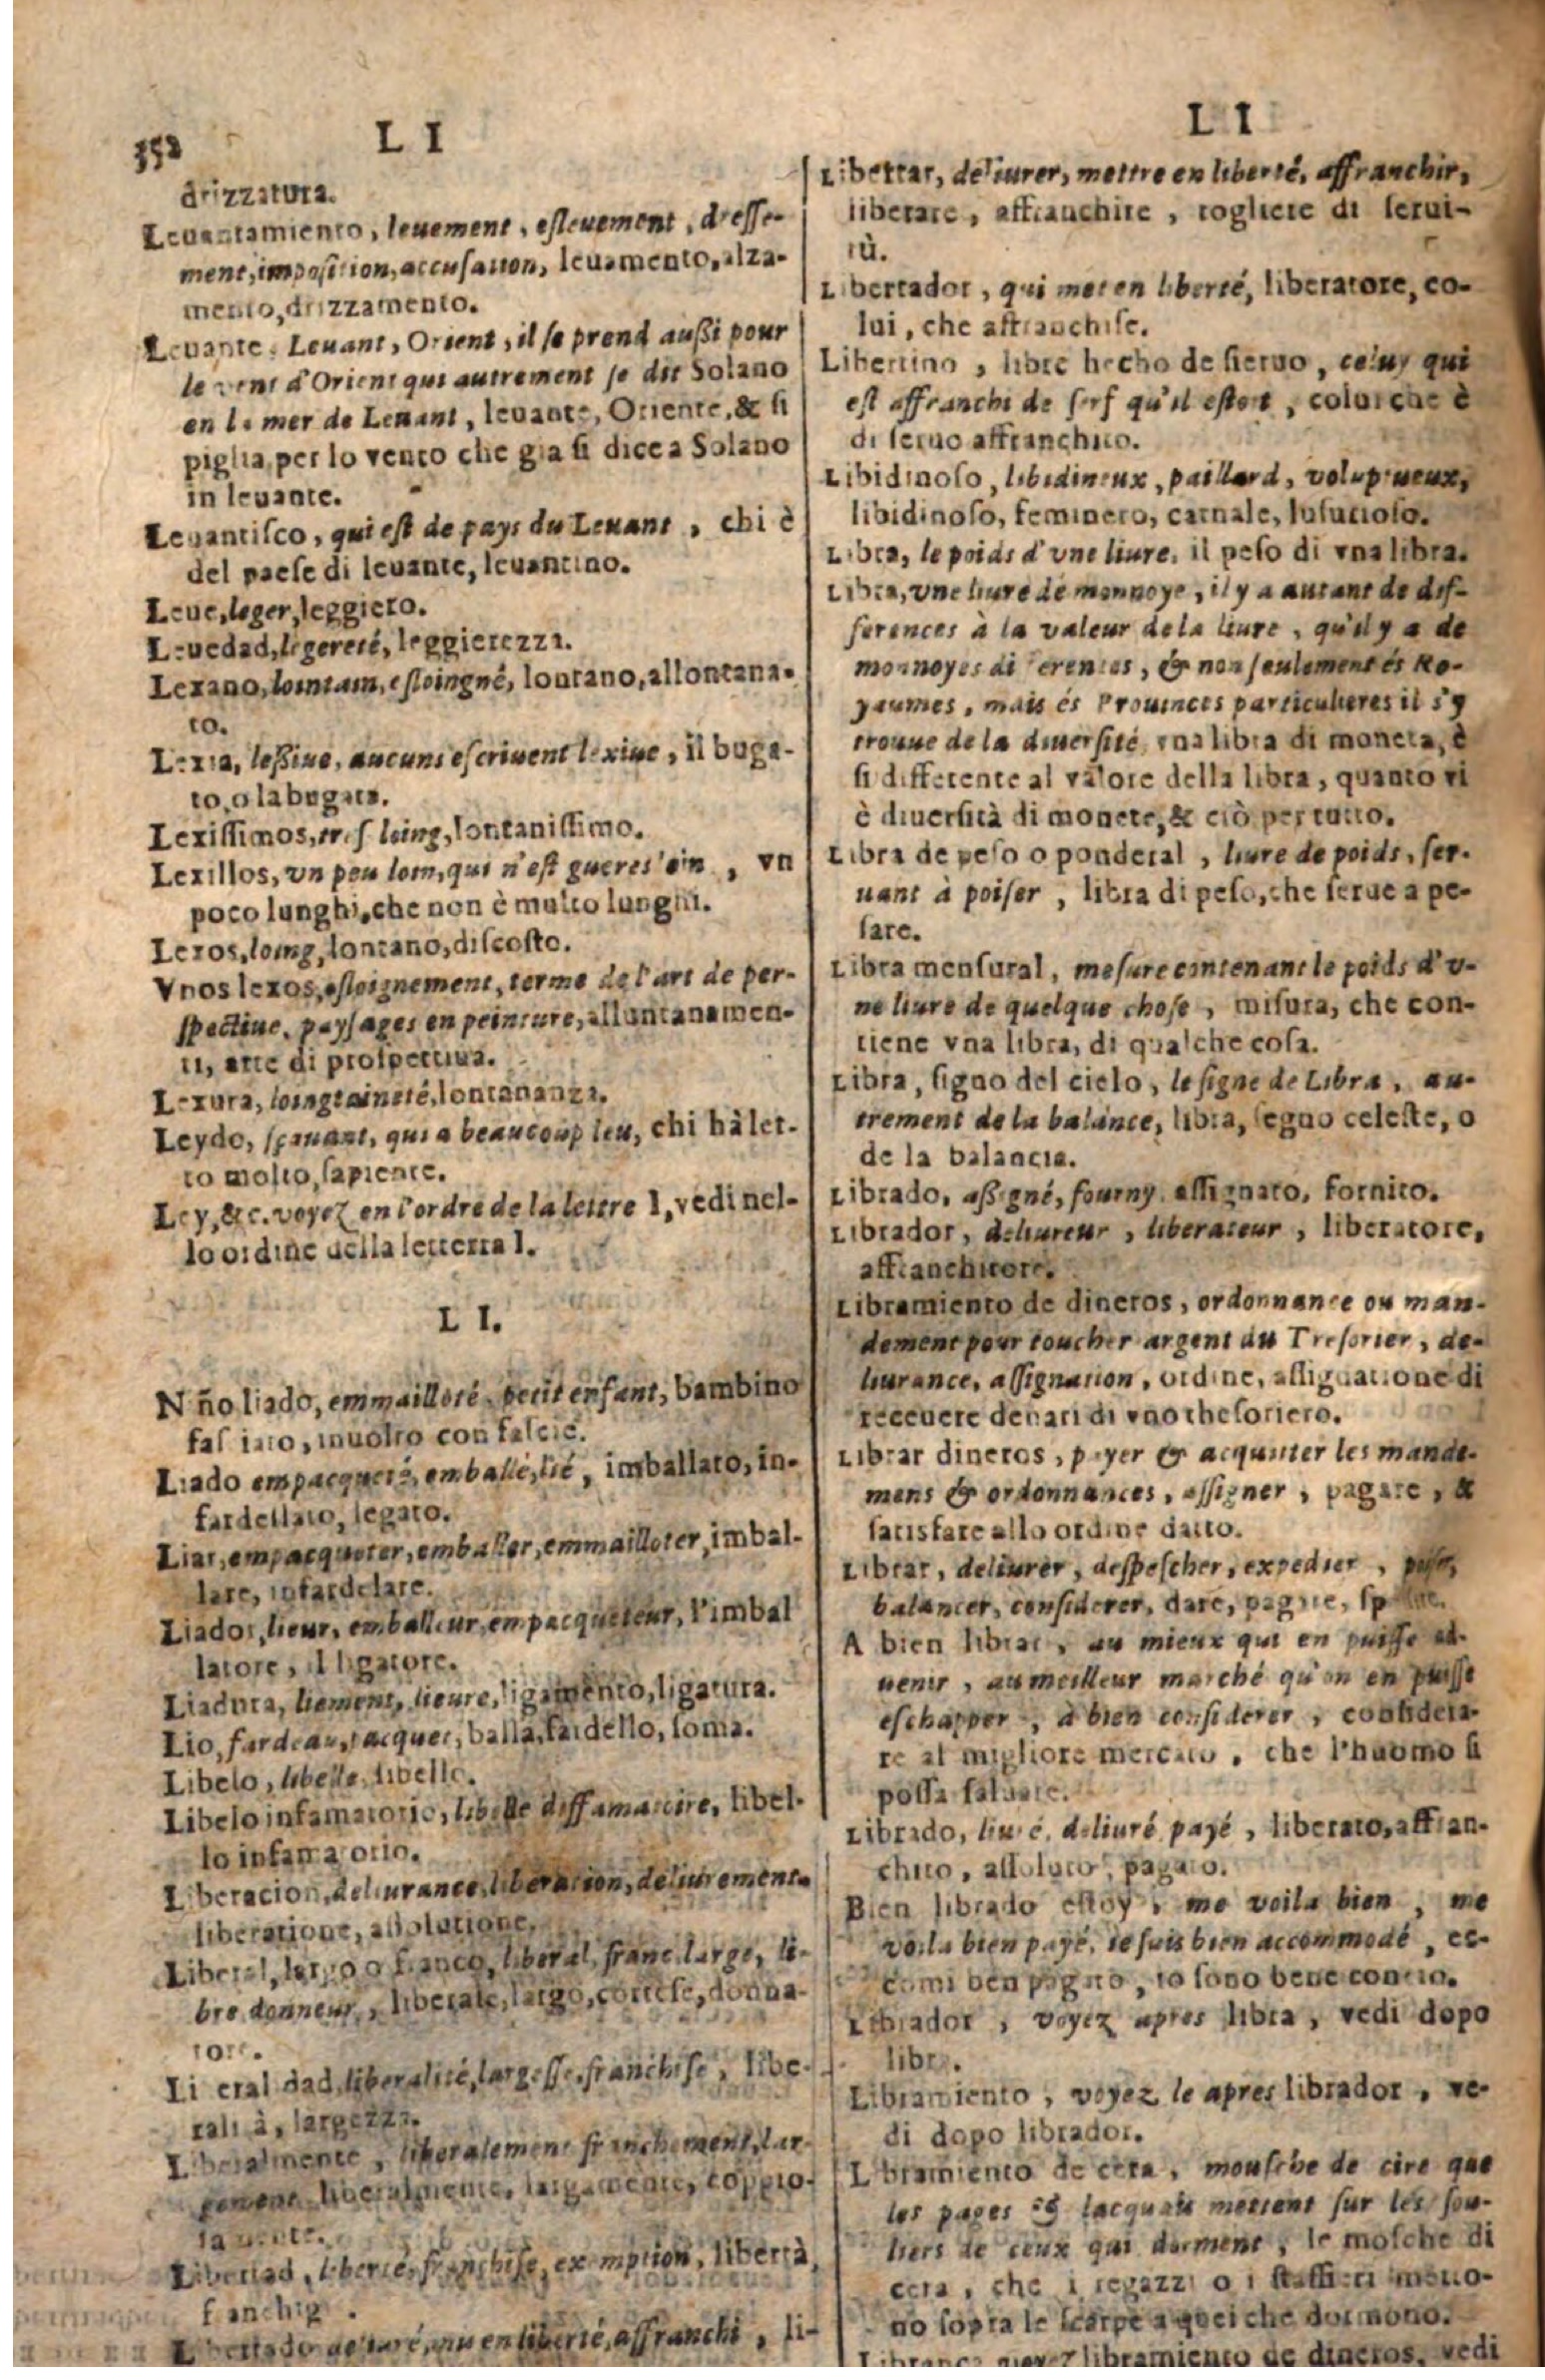 352
L I
drizzatura.
Leuantamiento, leuement, esleuement, dresse-
ment, imposition, accusation, leuamento, alza-
mento, drizzamento.
Leuante, Leuant, Orient, il se prend außi pour
le vent d'Orient qui autrement se dit Solano
en la mer de Leuant, leuante, Oriente, & si
piglia per lo vento che gia si dice a Solano
in leuante.
Leuantisco, qui est de pays du Leuant, chi è
del paese di leuante, leuantino.
Leue, leger, leggiero.
Leuedad, legereté, leggierezza.
Lexano, lointain, esloingné, lontano, allontana-
to.
Lexia, leßiue, aucuns escriuent lexiue, il buga-
to, o la bugata.
Lexissimos, tres loing, lontanissimo.
Lexillos, vn peu loin, qui n'est gueres loin, vn
poco lunghi, che non è multo lunghi.
Lexos, loing, lontano, discosto.
Vnos lexos, esloignement, terme de l'art de per-
spectiue, paysages en peinture, alluntanamen-
ti, arte di prospettiua.
Lexura, loingtaineté, lontananza.
Leydo, sçauant, qui a beaucoup leu, chi hà let-
to molto, sapiente.
Ley, &c. voyez en l'ordre de la lettre I, vedi nel-
lo ordine della letterra I.
L I.
Niño liado, emmailloté, petit enfant, bambino
fasciato, inuolto con fascie.
Liado empacqueté, emballé, lié, imballato, in-
fardellato, legato.
Liar, empacqueter, emballer, emmailloter, imbal-
lare, infardelare.
Liador, lieur, emballeur, empacqueteur, l'imbal
latore, il ligatore.
Liadura, liement, lieure, ligamento, ligatura.
Lio, fardeau, pacquet, balla, fardello, soma.
Libelo, libelle, libello.
Libelo infamatorio, libelle diffamatoire, libel-
lo infamatorio.
Liberacion, deliurance, liberation, deliurement,
liberatione, assolutione.
Liberal, largo o franco, liberal, franc, large, li-
bre donneur, liberale, largo, cortese, donna-
tore.
Liberalidad, liberalité, largesse, franchise, libe-
ralità, largezza.
Liberalmente, liberalement, franchement, lar-
gement, liberalmente, largamente, coppio-
samente.
Libertad, liberté, franchise, exemption, libertà,
Libertado deliuré, mis en liberté, affranchi, li-
L I
Libertar, deliurer, mettre en liberté, affranchir,
liberare, affranchire, togliere di serui-
tù.
Libertador, qui met en liberté, liberatore, co-
lui, che affranchise.
Libertino, libre hecho de sieruo, celuy qui
est affranchi de serf qu'il estoit, colui che è
di seruo affranchito.
Libidinoso, libidineux, paillard, voluptueux,
libidinoso, feminero, carnale, lusurioso.
Libra, le poids d'vne liure, il peso di vna libra.
Libra, vne liure de monnoye, il y a autant de dif-
ferences à la valeur de la liure, qu'il y a de
monnoyes differentes, & non seulement és Ro-
yaumes, mais és Prouinces particulieres il s'y
trouue de la diuersité, vna libra di moneta, è
si differente al valore della libra, quanto vi
è diuersità di monete, & ciò per tutto.
Libra de peso o ponderal, liure de poids, ser-
uant à poiser, libra di peso, che serue a pe-
sare.
Libra mensural, mesure contenant le poids d'v-
ne liure de quelque chose, misura, che con-
tiene vna libra, di qualche cosa.
Libra, signo del cielo, le signe de Libra, au-
trement de la balance, libra, segno celeste, o
de la balancia.
Librado, aßigné, fourny, assignato, fornito.
Librador, deliureur, liberateur, liberatore,
affranchitore.
Libramiento de dineros, ordonnance ou man-
dement pour toucher argent du Tresorier, de-
liurance, assignation, ordine, assignatione di
receuere denari di vno thesoriero.
Librar dineros, payer & acquiter les mande-
mens & ordonnances, assigner, pagare, &
satisfare allo ordine datto.
Librar, deliurer, despescher, expedier, peser,
balancer, considerer, dare, pagare,
A bien librar, au mieux qui en puisse ad-
uenir, au meilleur marché qu'on en puisse
eschapper, à bien considerer, considera-
re al migliore mercato, che l'huomo si
possa saluare.
Librado, liuré, deliuré, payé, liberato, affran-
chito, assoluto, pagato.
Bien librado estoy, me voila bien, me
voila bien payé, ie suis bien accommodé, ec-
comi ben pagato, io sono bene concio.
Librador, voyez apres libra, vedi dopo
libra.
Libramiento, voyez le apres librador, ve-
di dopo librador.
Libramiento de cera, mousche de cire que
les pages & lacquais mettent sur les sou-
liers de ceux qui dorment, le mosche di
cera, che i regazzi o i staffieri metto-
no sopra le scarpe a quei che dormono.
Librança, voyez libramiento de dineros, vedi